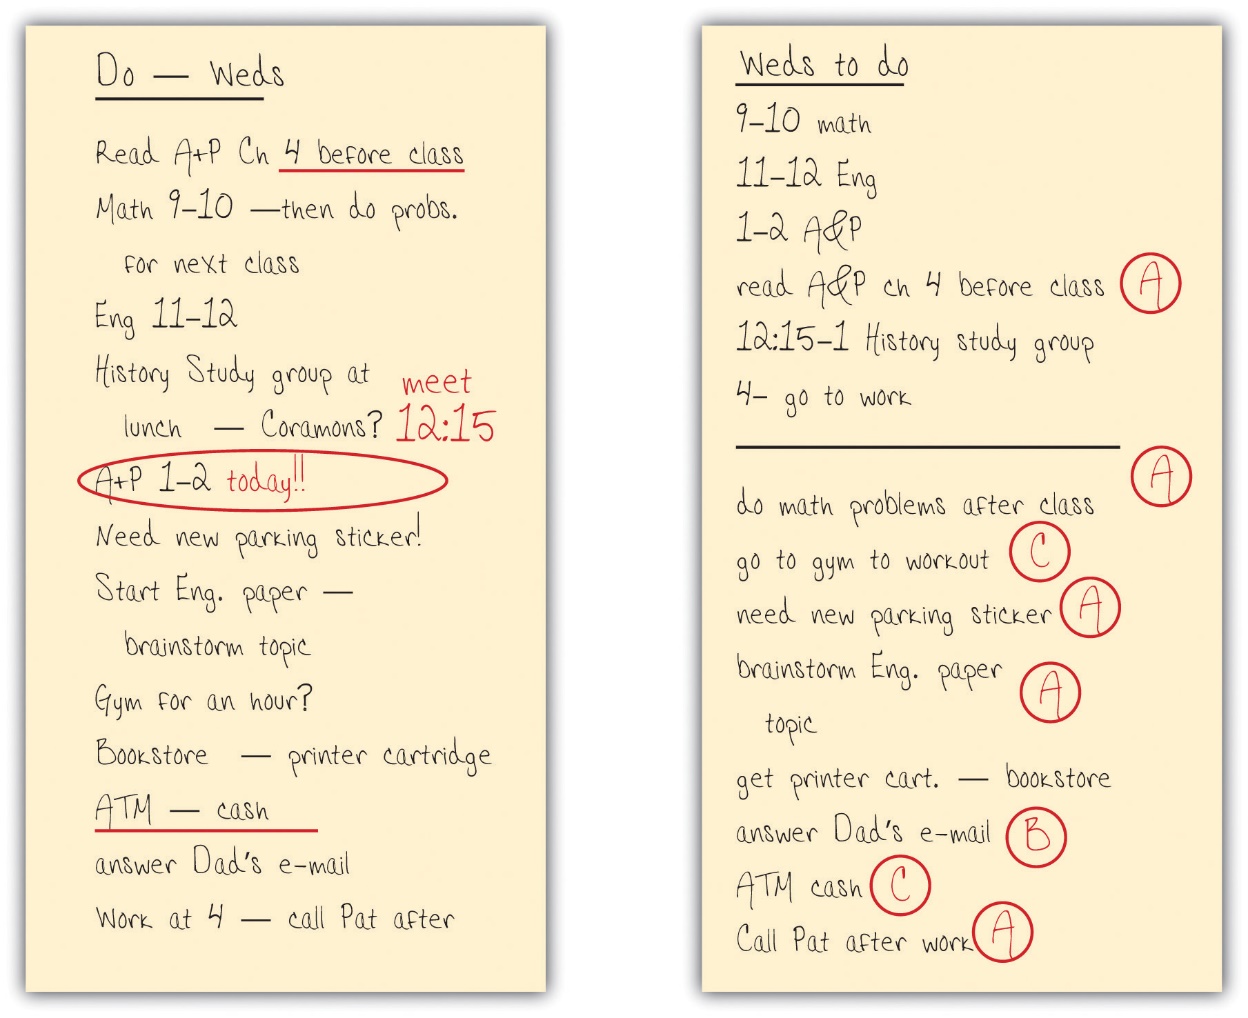 Do — Weds
Read A+P Ch 4 before class
Math 9–10 —then do probs.
for next class
Eng 11–12
History Study group at
lunch — Coramons? meet 12:15
A+P 1–2 today!!
Need new parking sticker!
Start Eng. paper —
brainstorm topic
Gym for an hour?
Bookstore — printer cartridge
ATM — cash
answer Dad's e-mail
Work at 4 — call Pat after
Weds to do
9–10 math
11–12 Eng
1–2 A&P
read A&P ch 4 before class A
12:15–1 History study group
4– go to work
do math problems after class A
go to gym to workout C
need new parking sticker A
brainstorm Eng. paper A
topic
get printer cart. — bookstore
answer Dad's e-mail B
ATM cash C
Call Pat after work A